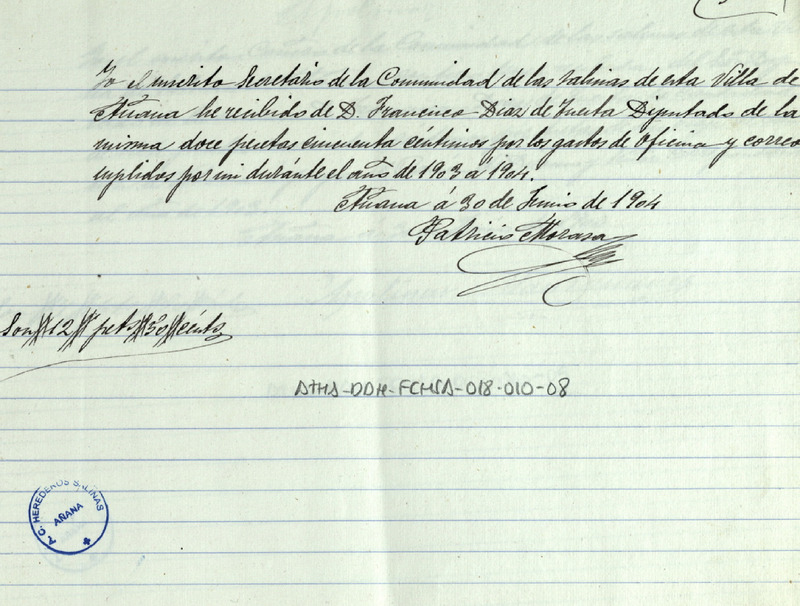 Yo el inscrito Secretario de la Comunidad de las Salinas de esta Villa de
Añana he recibido de D. Francisco Diaz de Tuesta Diputado de la
misma doce pesetas cincuenta céntimos por los gastos de Oficina y correo
suplidos por mi durante el año de 1903 á 1904.
Añana á 30 de Junio de 1904
Patricio Morasa
Son 12 pets 50 cénts
ATHA-DDH-FCHSA-018-010-08
A.C. HEREDEROS SALINAS
AÑANA